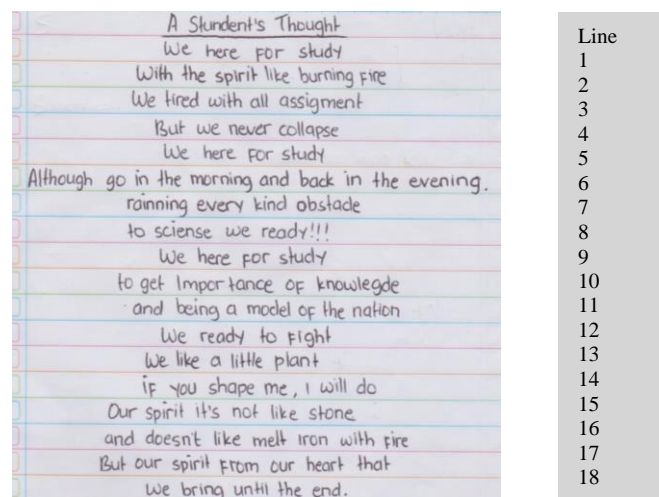 A Stundent's Thought
We here for study
With the spirit like burning fire
We tired with all assigment
But we never collapse
We here for study
Although go in the morning and back in the evening.
rainning every kind obstacle
to sciense we ready!!!
We here for study
to get Importance of knowlegde
and being a model of the nation
We ready to fight
We like a little plant
if you shape me, I will do
Our spirit it's not like stone
and doesn't like melt iron with fire
But our spirit from our heart that
We bring until the end.
Line
1
2
3
4
5
6
7
8
9
10
11
12
13
14
15
16
17
18